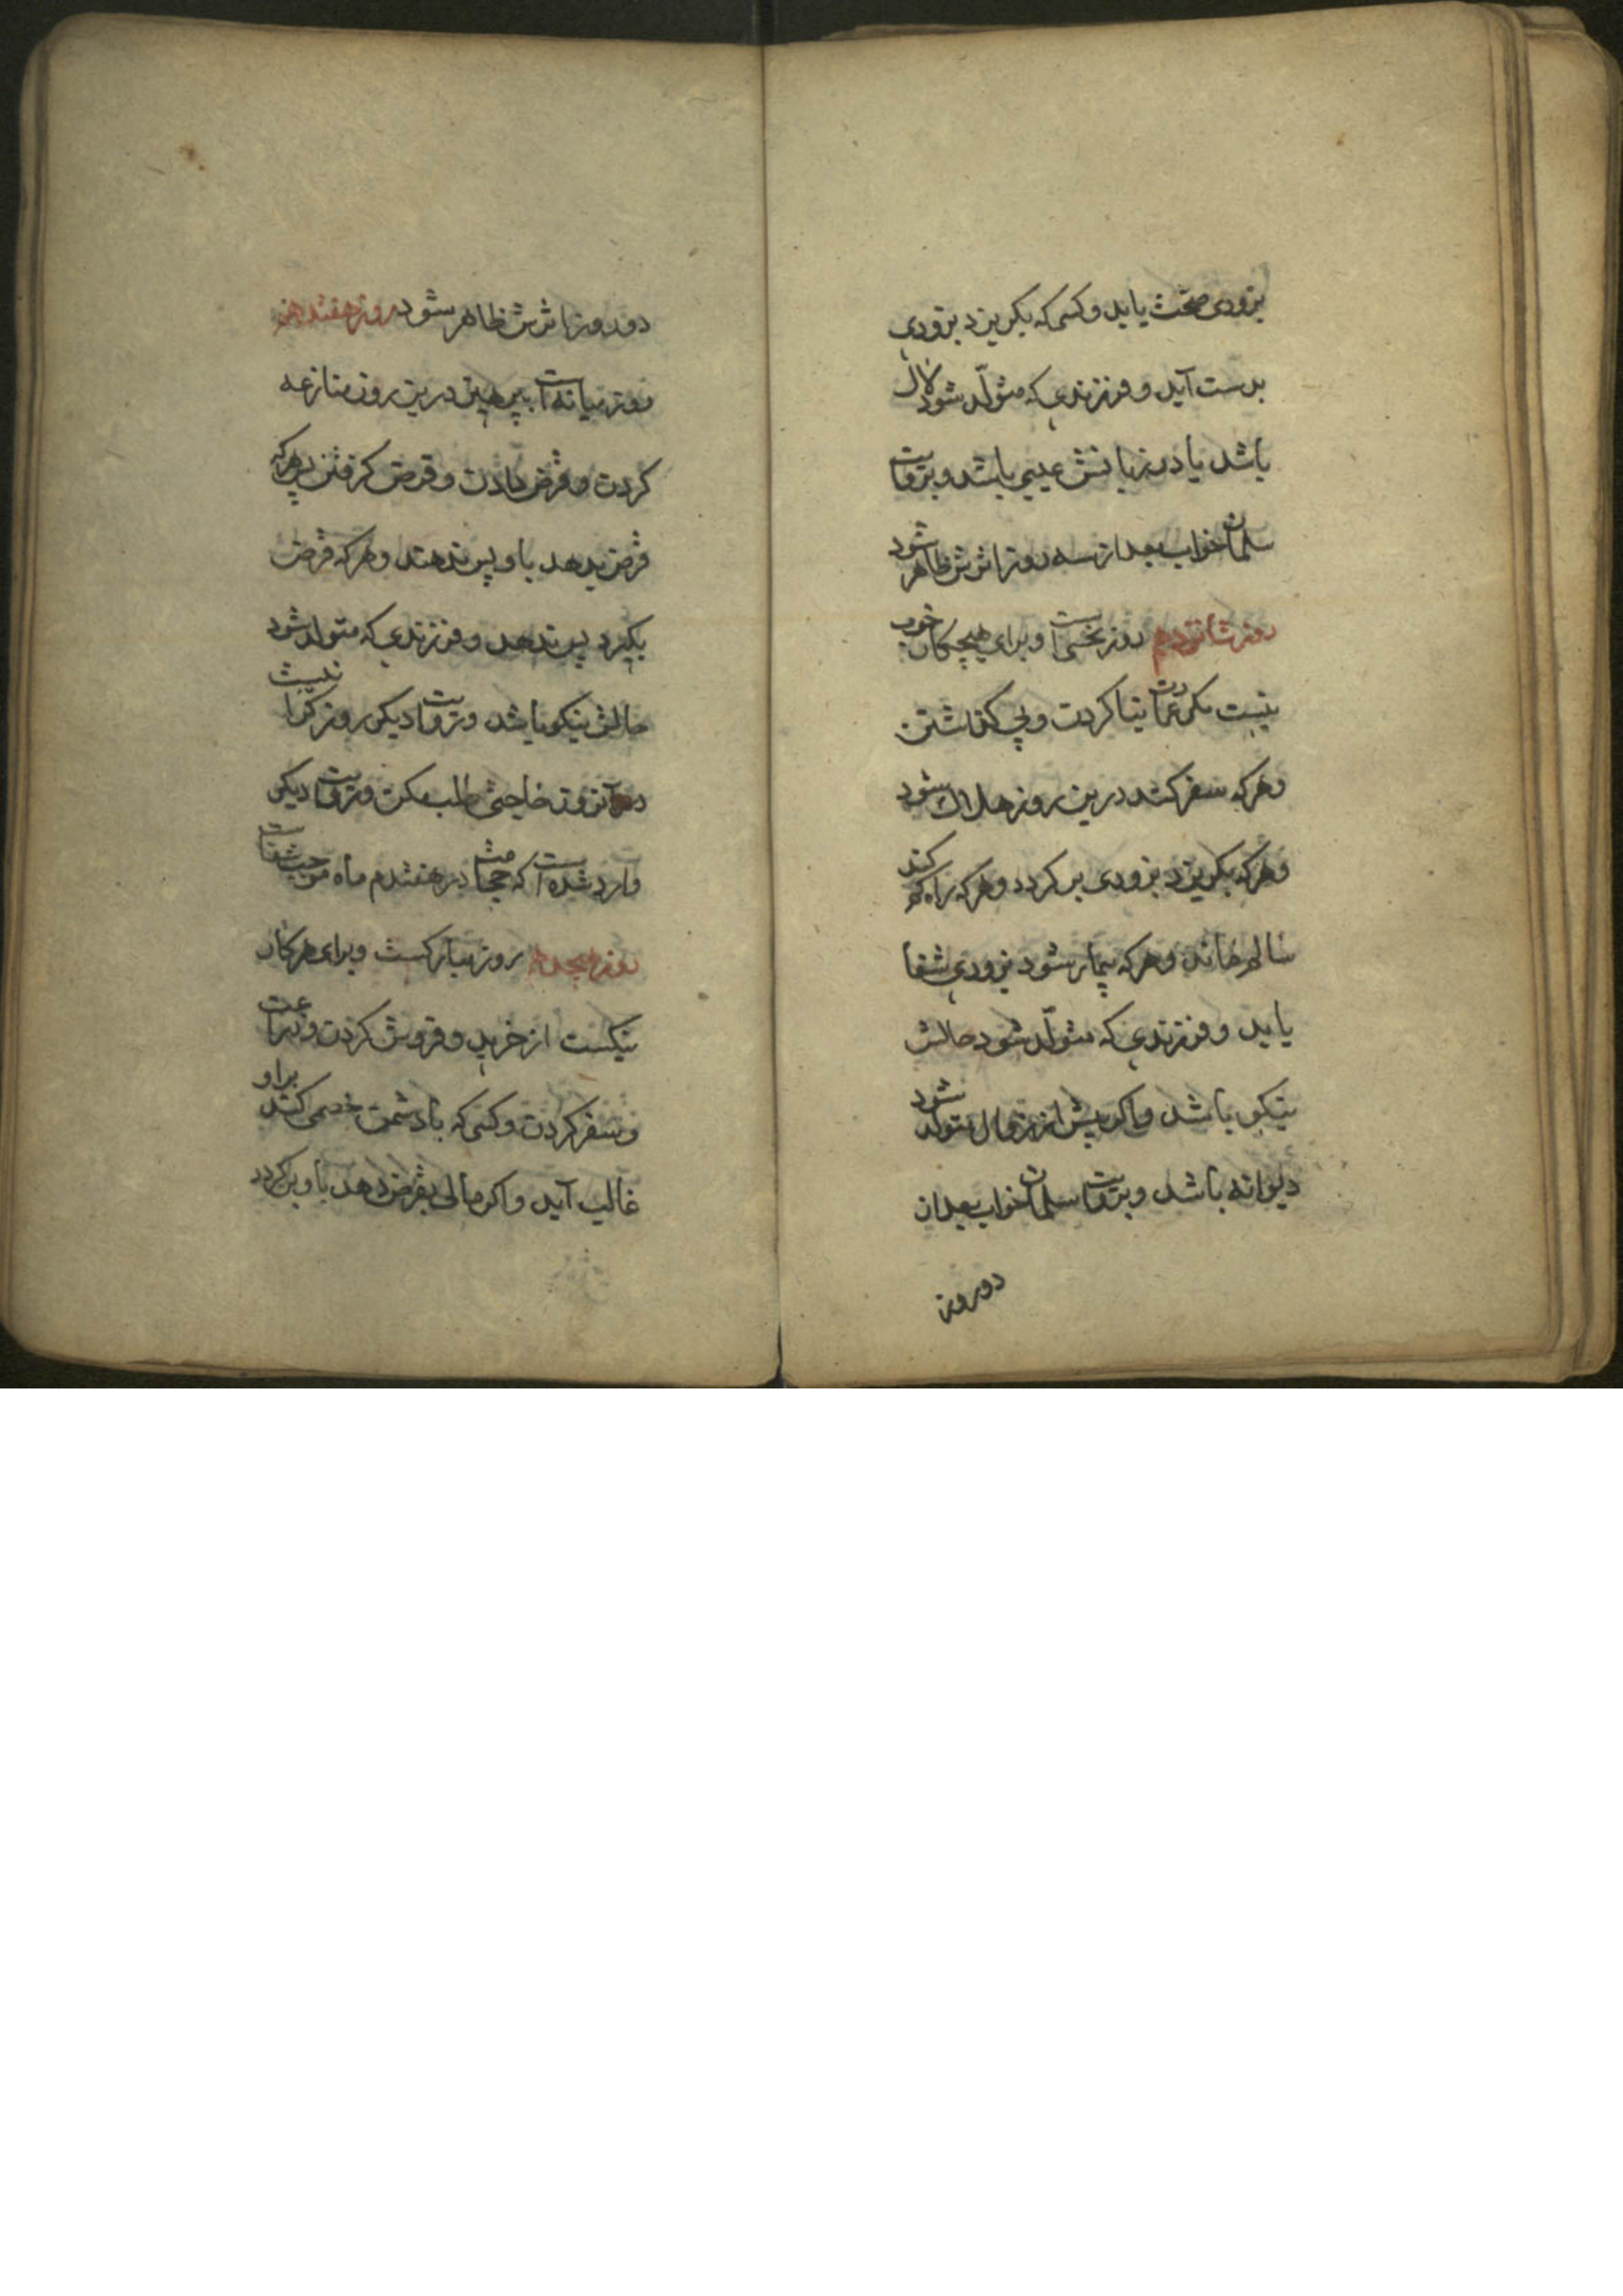 بزودی صحّت یابد و کسی که بگریزد بزودی
بدست آید و فرزندی که متولّد شود لال
باشد یا در زبانش عیبی باشد و بروایت
سلمان خواب بعد از سه روز اثرش ظاهر شود
روز شانزدهم روز نحسی است و برای هیچ کار خوب
نیست مگر عمارت بنا کردن و پی گذاشتن
و هر که سفر کند درین روز هلاک شود
و هر که بگریزد بزودی بر گردد و هر که راه گم کند
سالم ماند و هر که بیمار شود بزودی شفا
یابد و فرزندی که متولّد شود حالش
نیکو باشد و اگر پیش از زوال متولد شود
دیوانه باشد و بروایت سلمان خواب بعد از
دو روز
دو روز اثرش ظاهر شود روز هفتدهم
روز میانه است بپرهیز درین روز منازعه
کردن و قرض دادن و قرض گرفتن هر که
قرض بدهد باو پس ندهند و هر که قرض
بگیرد پس ندهد و فرزندی که متولد شود
حالش نیکو باشد و بروایت دیگر روز گرا نیست
در آنروز حاجتی طلب مکن و بروایت دیگر
وارد شده است که حجامت در هفتدهم ماه موجب شفاست
روز هیجدهم روز مبارکست و برای هر کار
نیکست از خرید و فروش کردن و زراعت
و سفر کردن و کسی که با دشمن خصمی کند براو
غالب آید و اگر مالی بقرض دهد باو بر گردد